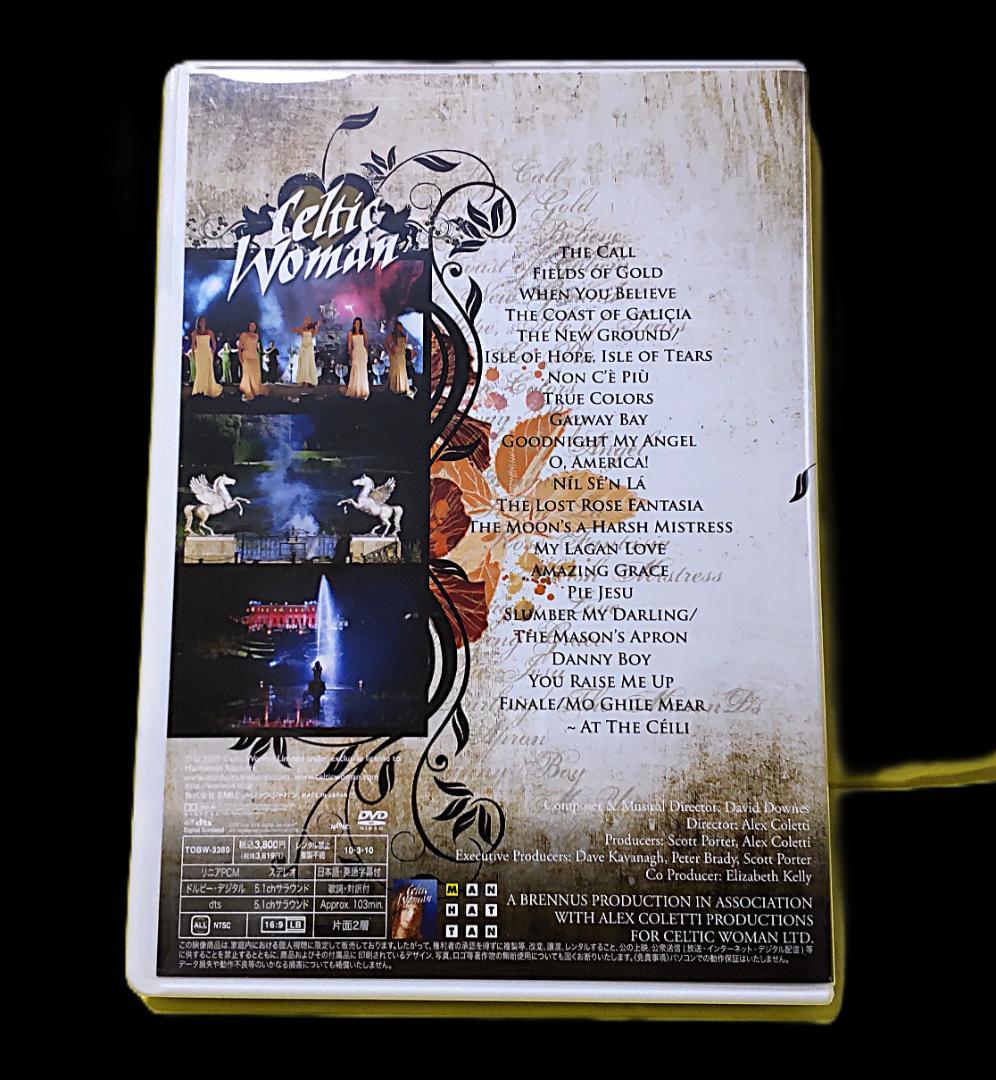 Celtic
Woman
THE CALL
FIELDS OF GOLD
WHEN YOU BELIEVE
THE COAST OF GALIÇIA
THE NEW GROUND/
ISLE OF HOPE, ISLE OF TEARS
NON C'È PIÙ
TRUE COLORS
GALWAY BAY
GOODNIGHT MY ANGEL
O, AMERICA!
NÍL SÉ'N LÁ
THE LOST ROSE FANTASIA
THE MOON'S A HARSH MISTRESS
MY LAGAN LOVE
AMAZING GRACE
PIE JESU
SLUMBER MY DARLING/
THE MASON'S APRON
DANNY BOY
YOU RAISE ME UP
FINALE/MO GHILE MEAR
~ AT THE CÉILI
Composer & Musical Director: David Downes
Director: Alex Coletti
Producers: Scott Porter, Alex Coletti
Executive Producers: Dave Kavanagh, Peter Brady, Scott Porter
Co Producer: Elizabeth Kelly
A BRENNUS PRODUCTION IN ASSOCIATION
WITH ALEX COLETTI PRODUCTIONS
FOR CELTIC WOMAN LTD.
www.celticwoman.com
MADE IN JAPAN
dts
DVD
VIDEO
TOBW-3380 税込3,800円 (税抜3,619円) レンタル禁止 複製不能 10·3·10
リニアPCM ステレオ 日本語・英語字幕付
ドルビー・デジタル 5.1chサラウンド 歌詞・対訳付
dts 5.1chサラウンド Approx. 103min.
ALL NTSC 16:9 LB 片面2層
Celtic Woman
MAN
HAT
TAN
この映像商品は、家庭内における個人視聴に限定して販売しております。したがって、権利者の承認を得ずに複製等、改変、譲渡、レンタルすること、公の上映、公衆送信(放送・インターネット・デジタル配信)等
に供することを禁止するとともに、商品およびその付属品に印刷されているデザイン、写真、ロゴ等著作物の無断使用についても固くお断りいたします。《免責事項》パソコンでの動作保証はいたしません。
データ損失や動作不良等のいかなる損害についても補償いたしません。